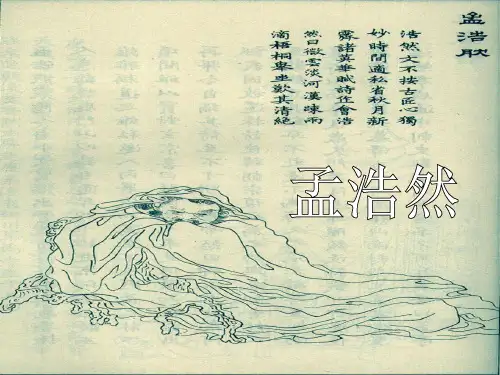 孟浩肰
浩然文不按古匠心獨
妙時間適私省秋月新
霽諸英華賦詩作會浩
然曰微雲淡河漢疎雨
滴梧桐舉坐歎其清絕
孟浩然